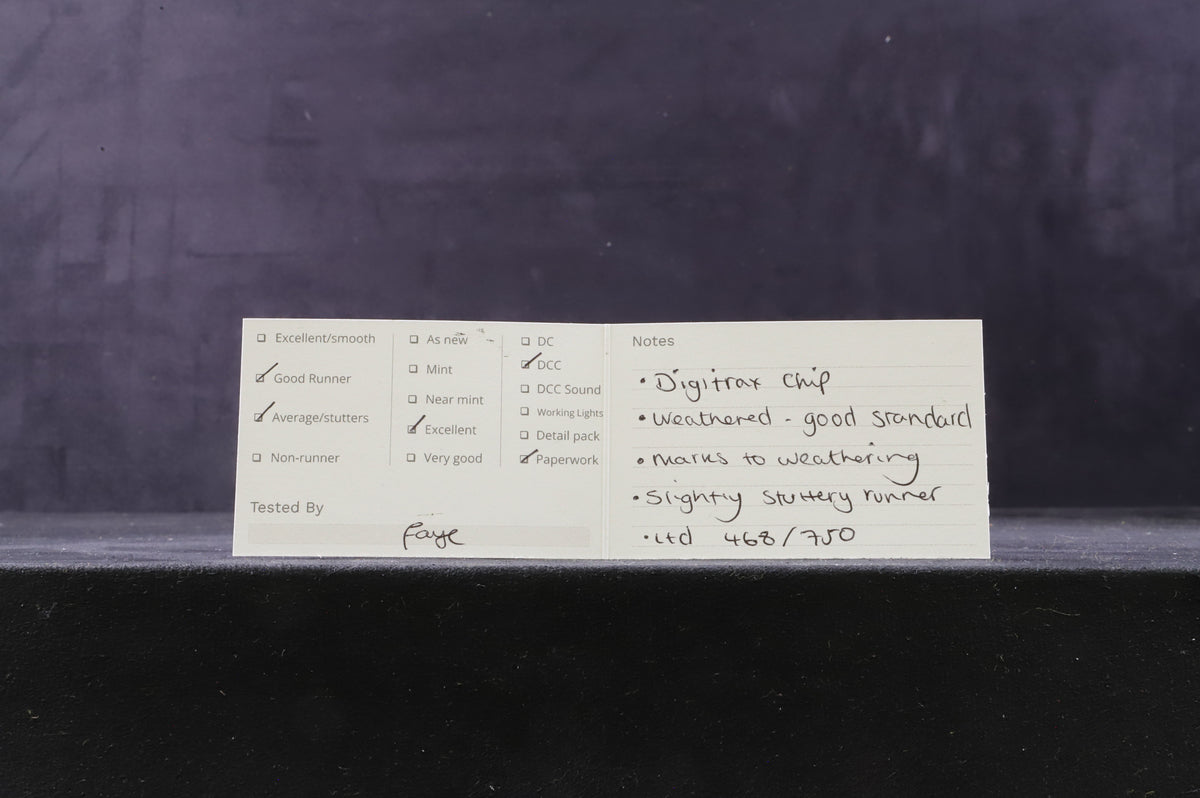 ☐ Excellent/smooth
☑ Good Runner
☑ Average/stutters
☐ Non-runner
☐ As new
☐ Mint
☐ Near mint
☑ Excellent
☐ Very good
☐ DC
☑ DCC
☐ DCC Sound
☐ Working Lights
☐ Detail pack
☑ Paperwork
Tested By
Faye
Notes
• Digitrax Chip
• Weathered - good standard
• Marks to weathering
• Slightly stuttery runner
• Ltd 468/750